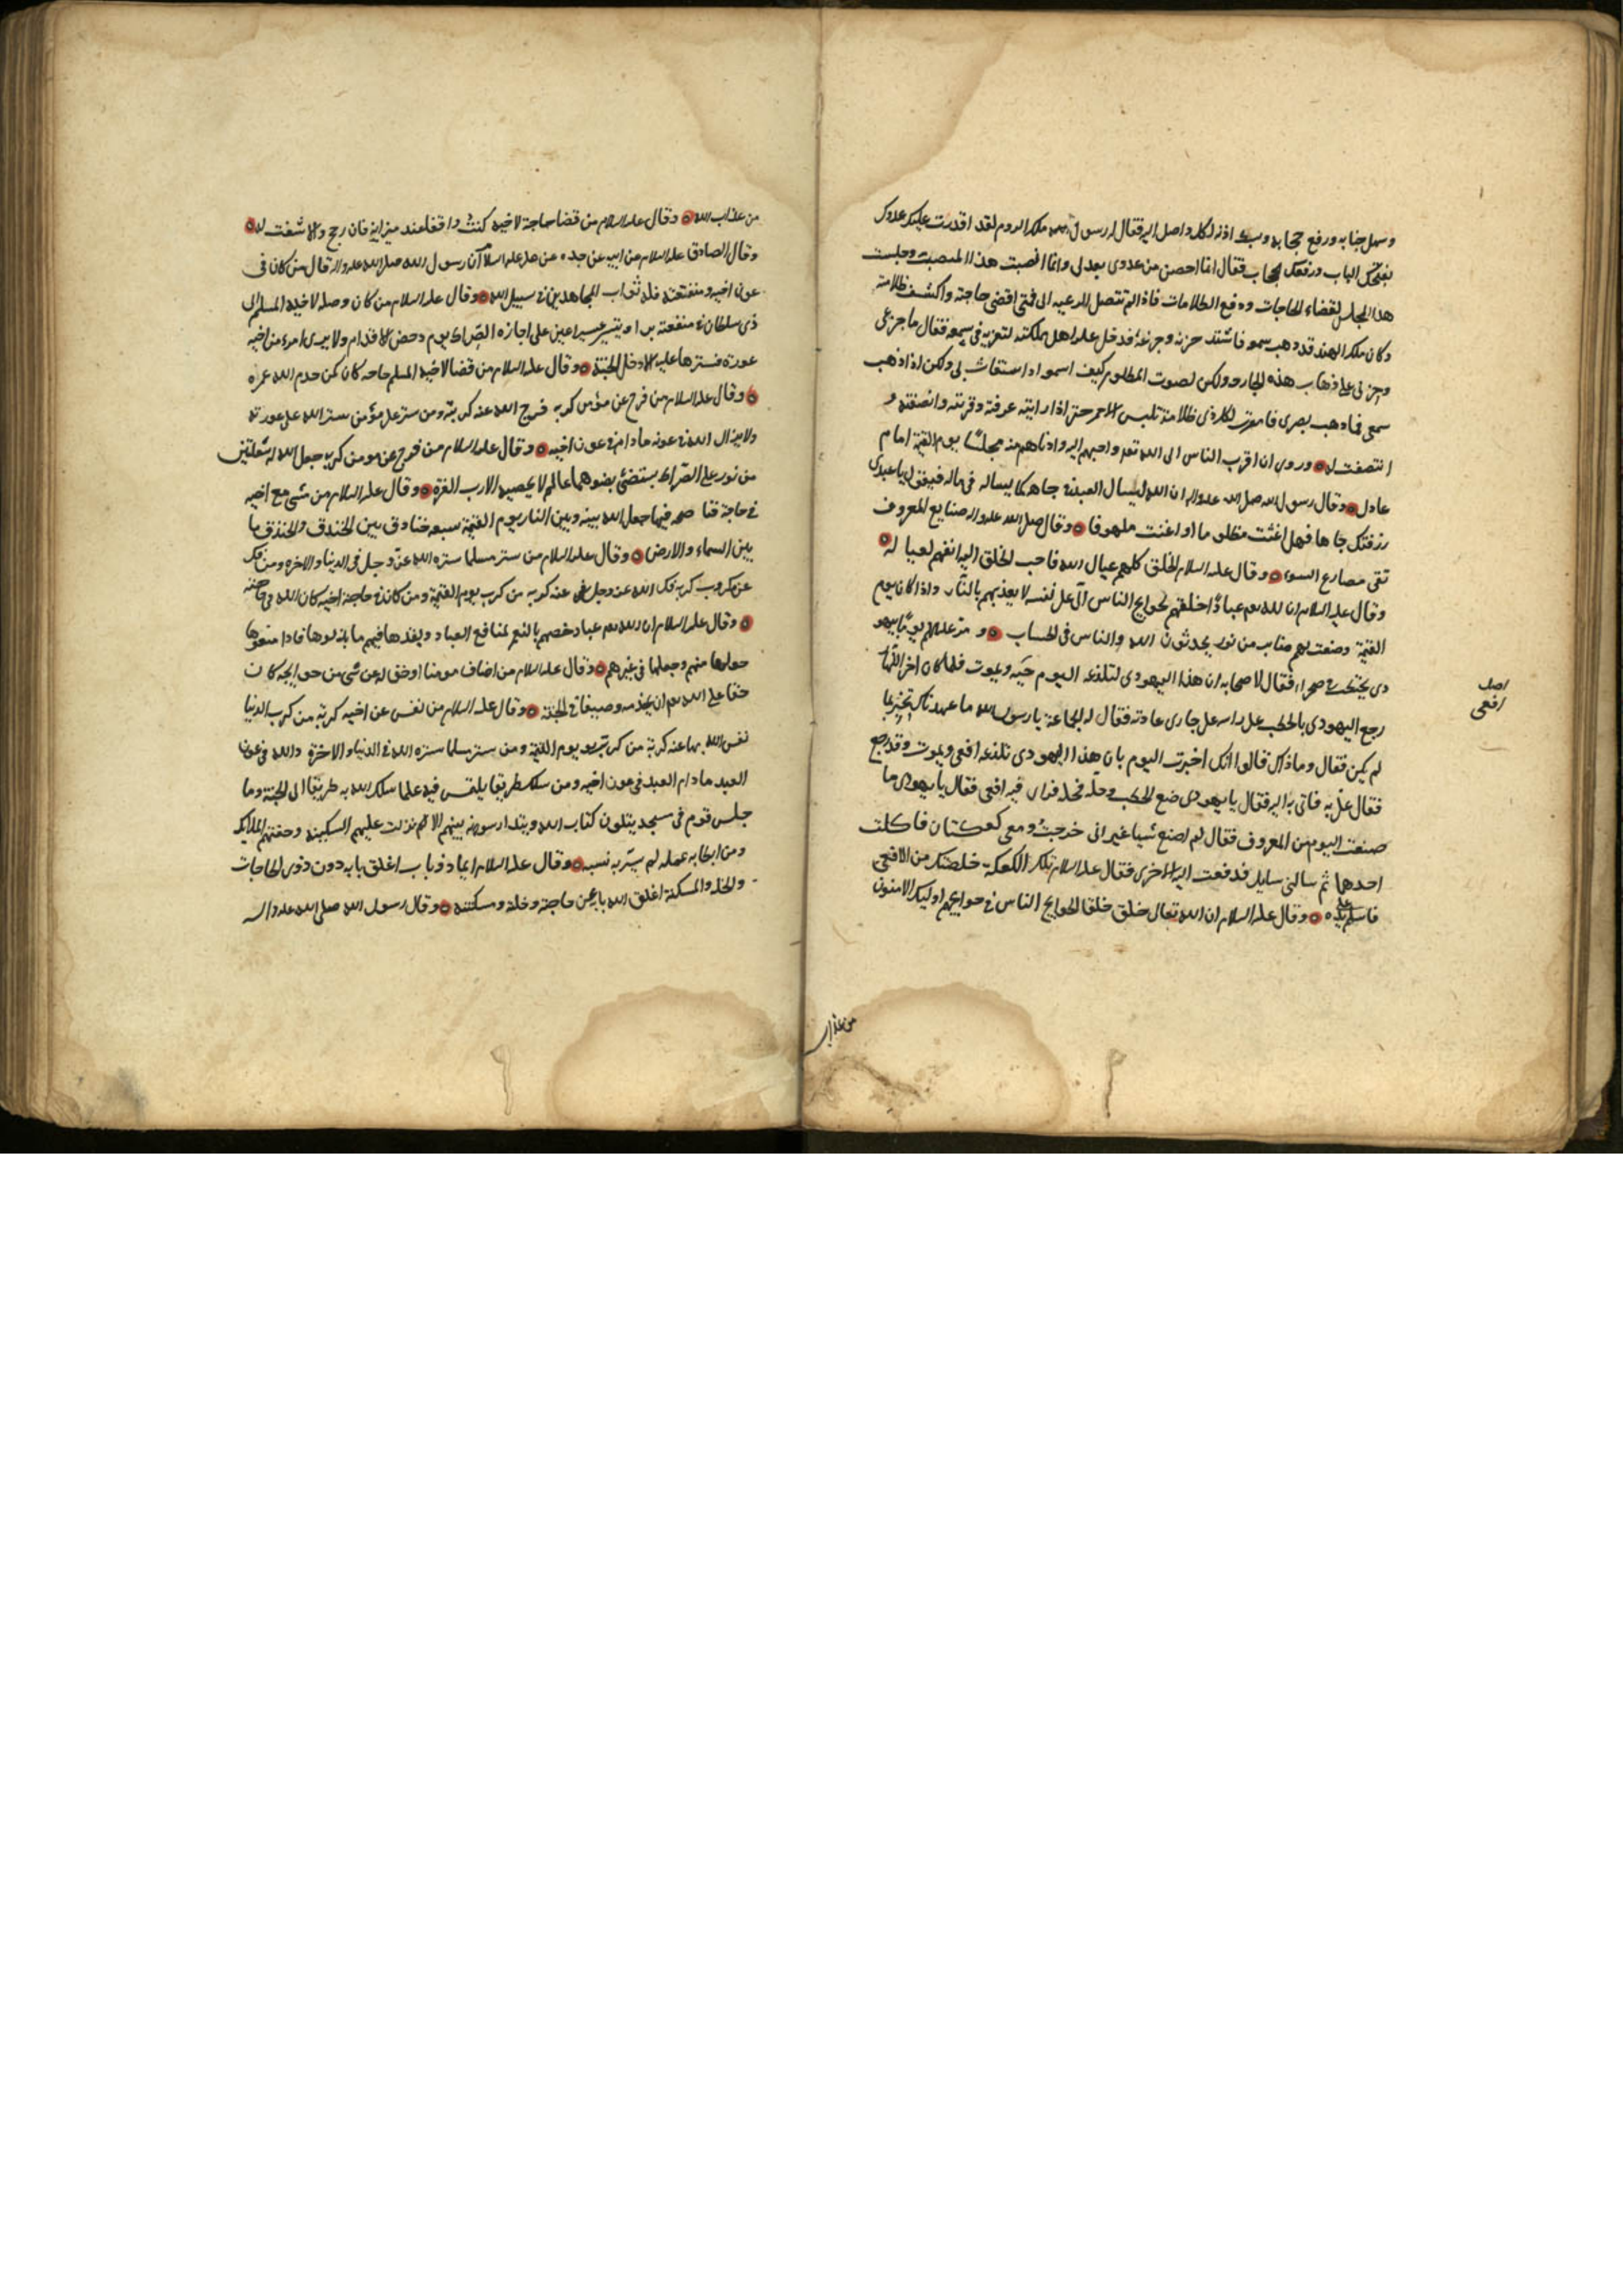 وسهل جنابه ورفع حجابه اذنه لكل واصل اليه فقال له رسول ملك الروم لقد اقدرت عليك عدوك
بفتحك الباب ورفعك الحجاب فقال انما احصن من عدوى بعدلى وانما انصبت هذا المنصب وجلست
هذا المجلس لقضاء الحاجات ودفع الظلامات فاذا لم تتصل الرعيه الى فمتى اقضى حاجته واكشف ظلامته
وكان ملك الهند قد ذهب سمعه فاشتد حزنه وجزعه فدخل عليه اهل مملكته لتعزيه فى سمعه فقال ما جزعى
وحزنى على ذهاب هذه الجارحه ولكن لصوت المظلوم كيف اسمعه اذا استغاث بى ولكن اذا ذهب
سمعى فما ذهب بصرى فامرت لكل ذى ظلامة تلبس الاحمر حتى اذا رايته عرفته وقربته وانصفته و
انتصفت له وروى ان اقرب الناس الى الله تعه واحبهم اليه وادناهم منه مجلسا يوم القيمة امام
عادل وقال رسول الله صلى الله عليه واله ان الله ليسال العبد فى جاهه كما يساله فى ماله فيقول يا عبدى
رزقتك جاها فهل اغثت مظلوما او اعنت ملهوفا وقال صلى الله عليه واله صنايع المعروف
تقى مصارع السوء وقال عليه السلام الخلق كلهم عيال الله فاحب الخلق اليه انفعهم لعياله
وقال عليه السلام ان لله عباداً خلقهم لحوايج الناس آلى على نفسه لا يعذبهم بالنار واذا كان يوم
القيمة وضعت لهم منابر من نور يحدثون الله والناس فى الحساب ومر عليهم يوما يهو
دى يحتطب فى صحراء فقال لاصحابه ان هذا اليهودى لتلدغه اليوم حيه ويموت فلما كان اخر النهار
رجع اليهودى بالحطب على راسه على جارى عادته فقال له الجماعة يا رسول الله ما عهدناك تخبر بما
لم يكن فقال وما ذاك قالوا انك اخبرت اليوم بان هذا اليهودى تلدغه افعى ويموت وقد رجع
فقال على به فاتى به اليه فقال يا يهودى ضع الحطب وحله فحله فراى فيه افعى فقال يا يهودى ما
صنعت اليوم من المعروف فقال لم اصنع شيا غير انى خرجت ومعى كعكتان فاكلت
احدهما ثم سالنى سايل فدفعت اليه الاخرى فقال عليه السلام تلك الكعكة خلصتك من الافعى
فاسلم على يده وقال عليه السلام ان الله تعالى خلق خلقا لحوايج الناس فى حوايجهم اوليك الامنون
اصل
افعى
من عذاب
من عذاب الله وقال عليه السلام من قضا حاجة لاخيه كنت واقفا عند ميزانه فان رجح والا شفعت له
وقال الصادق عليه السلام من ابيه عن جده عن على عليه السلام ان رسول الله صلى الله عليه واله قال من كان فى
عون اخيه ومنفعته فله ثواب المجاهدين فى سبيل الله وقال عليه السلام من كان وصله لاخيه المسلم الى
ذى سلطان فى منفعة بر او تيسير عسير اعين على اجازه الصراط يوم دحض الاقدام ولا يرى امرء من اخيه
عورة فسترها عليه الا دخل الجنة وقال عليه السلام من قضا لاخيه المسلم حاجه كان كمن خدم الله عمره
وقال عليه السلام من فرج عن مؤمن كربه فرج الله عنه كربته ومن ستر على مؤمن ستر الله على عورته
ولا يزال الله فى عونه ما دام فى عون اخيه وقال عليه السلام من فرج عن مومن كربه جعل الله له شعلتين
من نور على الصراط يستضئ بضوهما عالم لا يحصيه الا رب العزه وقال عليه السلام من مشى مع اخيه
فى حاجة فناصحه فيها جعل الله بينه وبين النار يوم القيمة سبعه خنادق بين الخندق والخندق ما
بين السماء والارض وقال عليه السلام من ستر مسلما ستره الله عز وجل فى الدنيا والاخره ومن فك
عن مكروب كربه فك الله عز وجل عنه كربه من كرب يوم القيمة ومن كان فى حاجة اخيه كان الله فى حاجته
وقال عليه السلام ان لله عباد خصهم بالنعم لمنافع العباد ويقرها فيهم ما بذلوها فاذا منعوها
حولها منهم وجعلها فى غيرهم وقال عليه السلام من اضاف مومنا او خف له عن شى من حوايجه كان
حقا على الله ان يخدمه وصيفا فى الجنة وقال عليه السلام من نفس عن اخيه كربة من كرب الدنيا
نفس الله بها عنه كربة من كرب يوم القيمة ومن ستر مسلما ستره الله فى الدنيا والاخرة والله فى عون
العبد ما دام العبد فى عون اخيه ومن سلك طريقا يلتمس فيه علما سلك الله به طريقا الى الجنة وما
جلس قوم فى مسجد يتلون كتاب الله ويتدارسونه بينهم الا نزلت عليهم السكينة وحفتهم الملايكه
ومن ابطا به عمله لم يسرع به نسبه وقال عليه السلام ايما ذو باب اغلق بابه دون ذوى الحاجات
والخله والمسكنة اغلق الله بابه عن حاجته وخلته ومسكنته وقال رسول الله صلى الله عليه واله